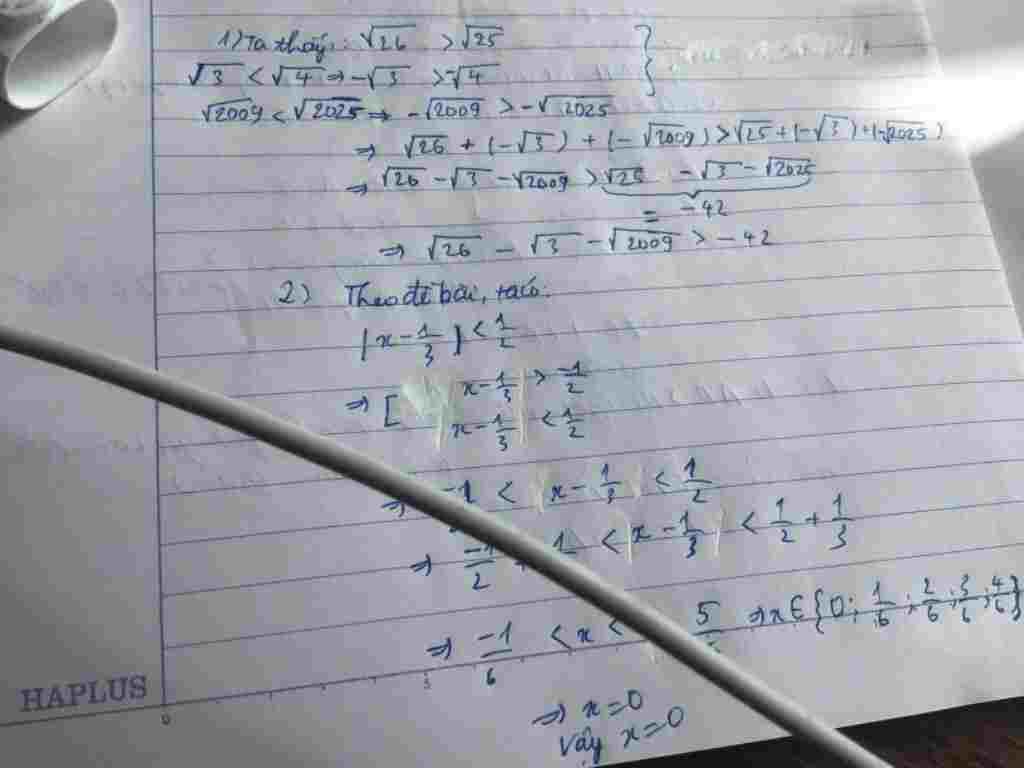 1) Ta thấy: √26 > √25
√3 < √4 ⇒ -√3 > -√4
√2009 < √2025 ⇒ -√2009 > -√2025
⇒ √26 + (-√3) + (-√2009) > √25 + (-√3) + (-√2025)
⇒ √26 - √3 - √2009 > √25 - √3 - √2025
= -42
⇒ √26 - √3 - √2009 > -42
2) Theo đề bài, ta có:
|x - 1/3| < 1/2
⇒ [ x - 1/3 > -1/2
x - 1/3 < 1/2
⇒ -1 < x - 1/3 < 1/2
⇒ -1/2 + 1 < x - 1/3 < 1/2 + 1/3
⇒ -1/6 < x < 5 ⇒ x ∈ {0; 1/6; 2/6; 3/6; 4/6}
⇒ x = 0
Vậy x = 0
HAPLUS
0 5